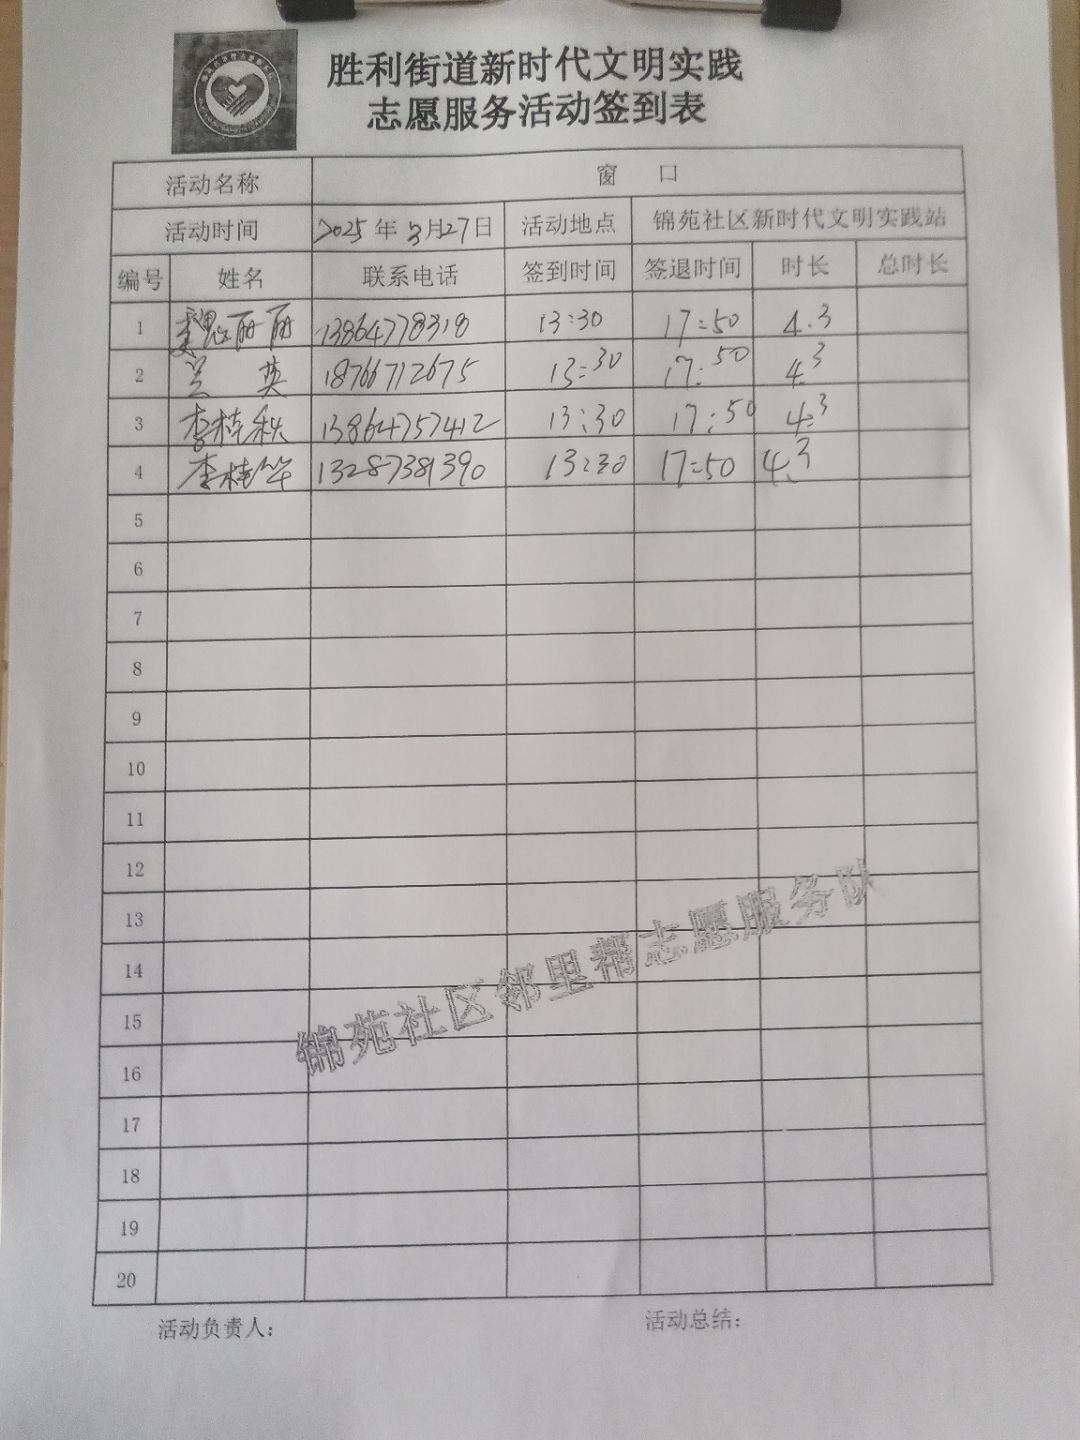 胜利街道新时代文明实践
志愿服务活动签到表
活动名称 窗 口
活动时间 2025年3月27日 活动地点 锦苑社区新时代文明实践站
编号 姓名 联系电话 签到时间 签退时间 时长 总时长
1 魏丽丽 13864778318 13:30 17:50 4.3
2 兰英 18766712675 13:30 17:50 4.3
3 李桂秋 13864757412 13:30 17:50 4.3
4 李桂华 13287381390 13:30 17:50 4.3
5
6
7
8
9
10
11
12
13
14
15
16
17
18
19
20
锦苑社区邻里帮志愿服务队
活动负责人： 活动总结：